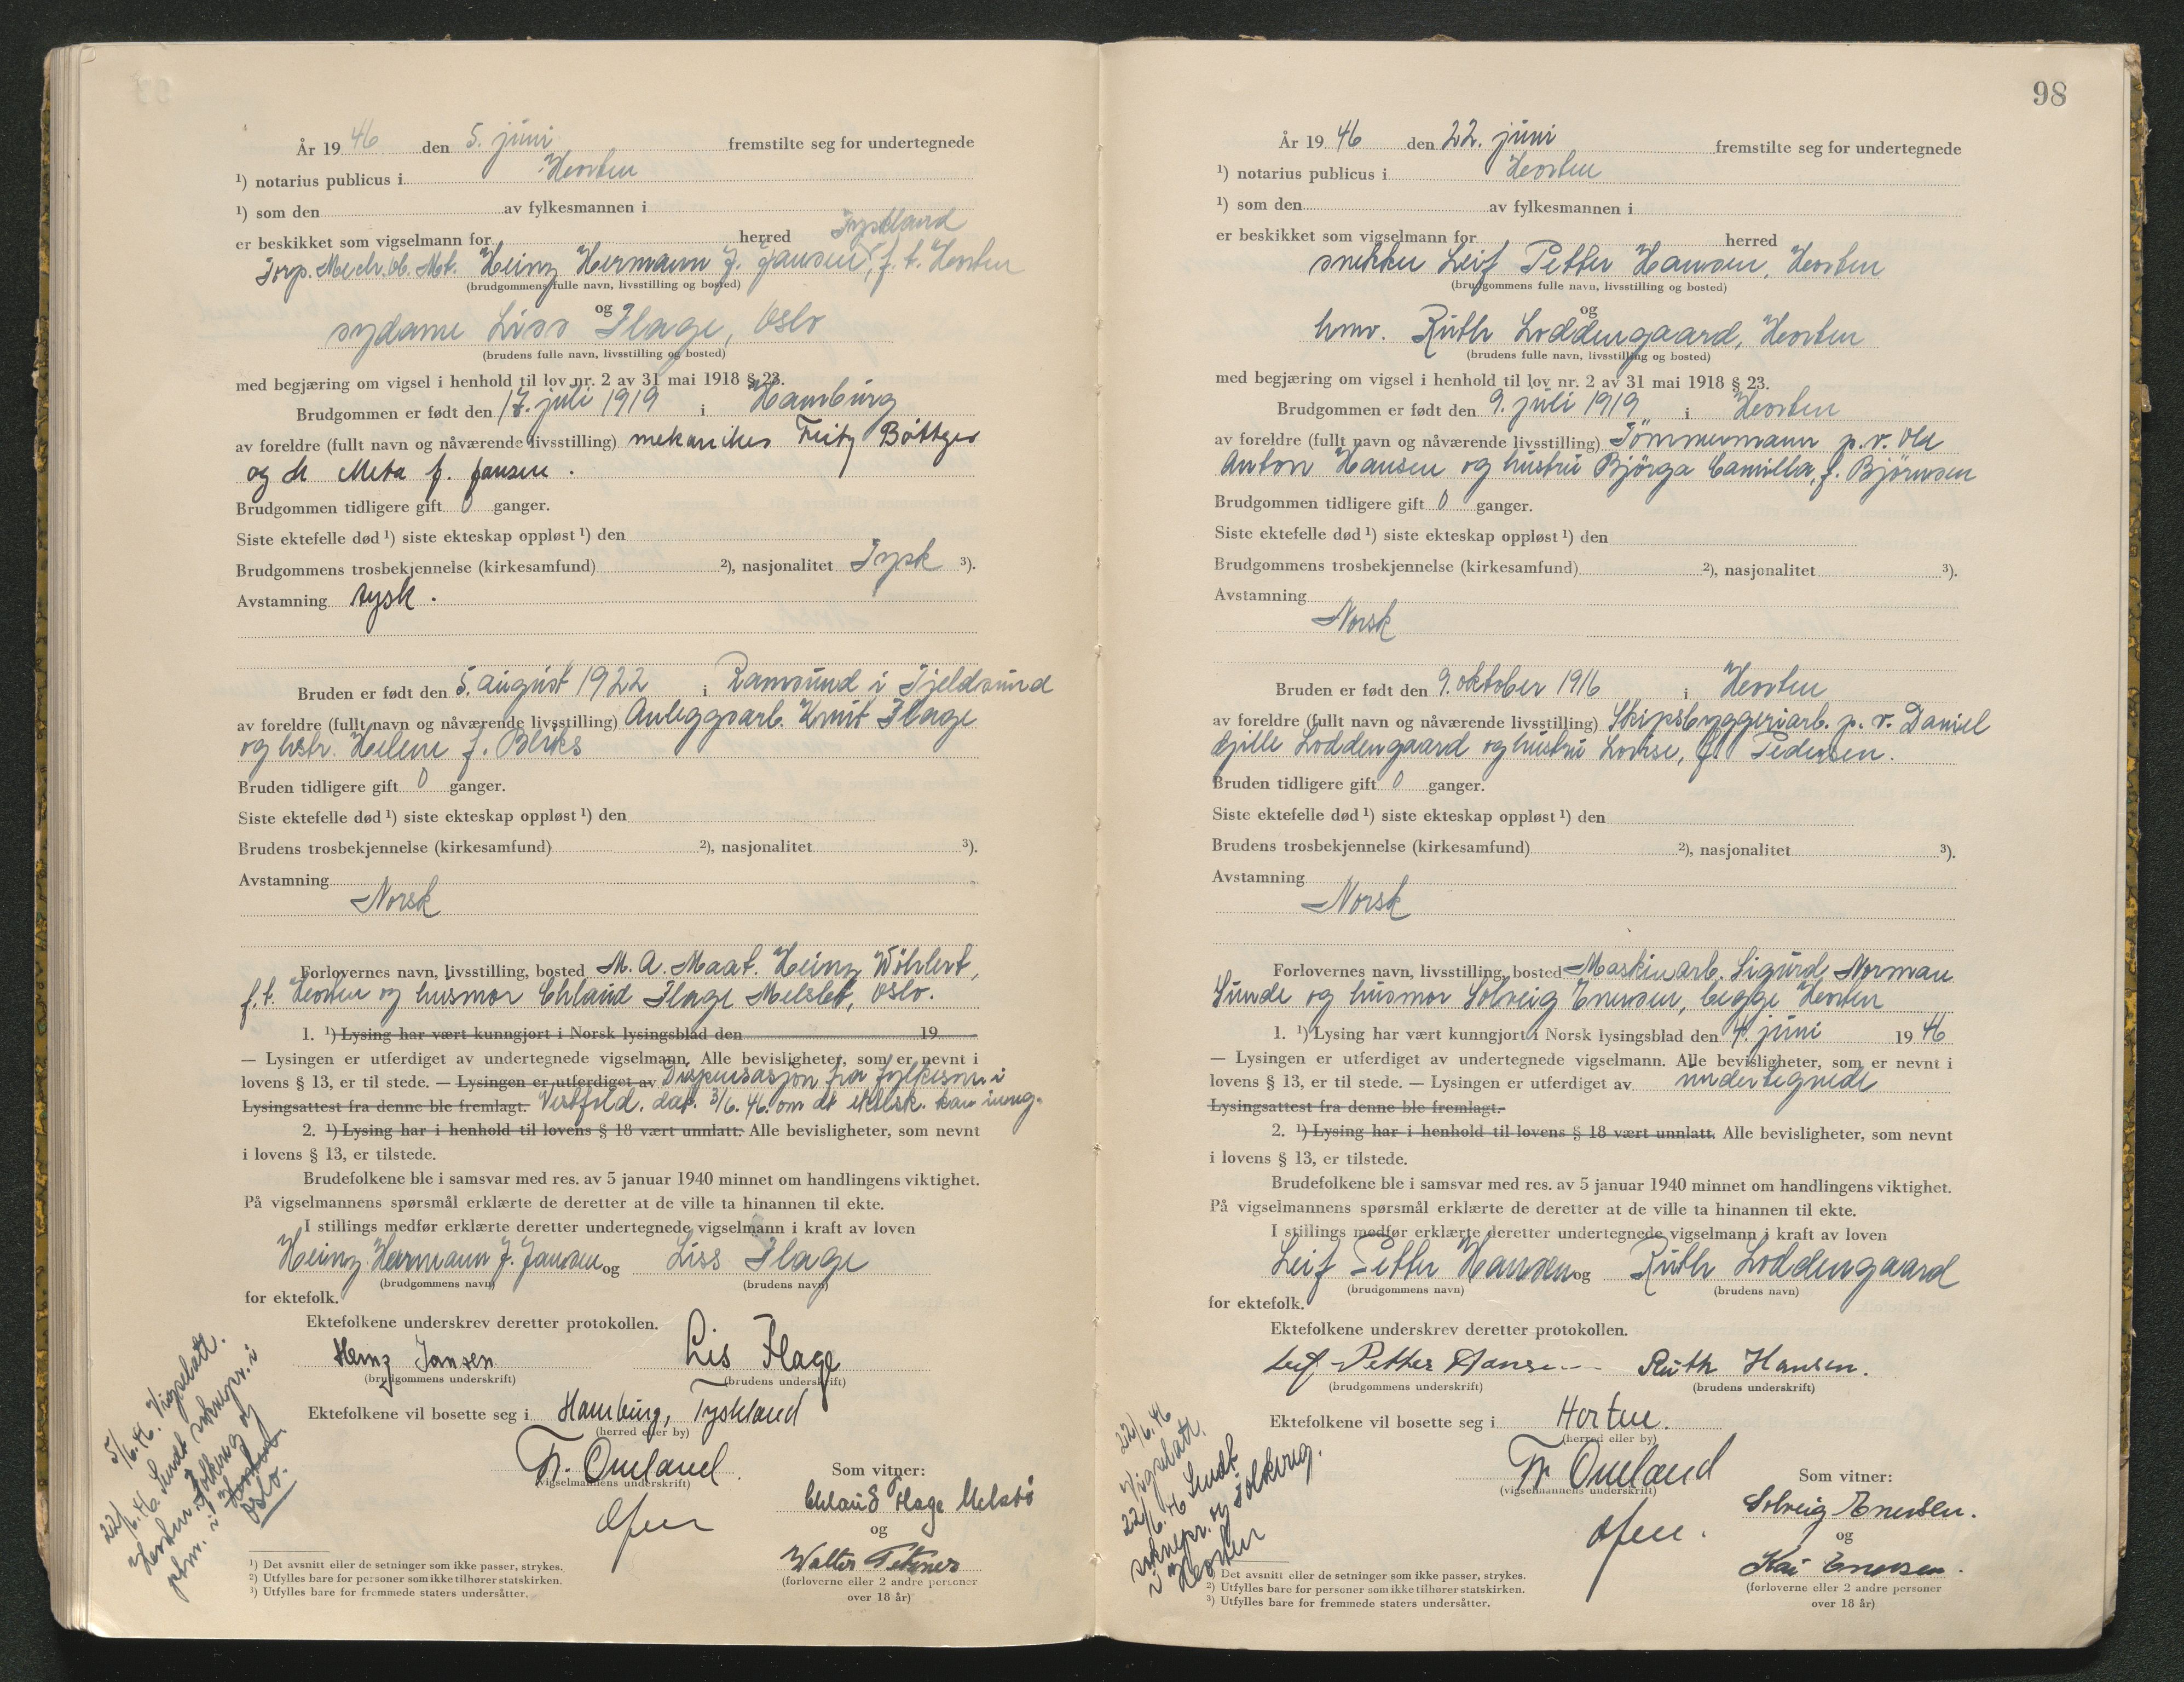 År 19 46 den 5. juni fremstilte seg for undertegnede
¹) notarius publicus i Horten
¹) som den av fylkesmannen i
Tyskland
er beskikket som vigselmann for herred
Torp. Mech. Ob. Mt. Heinz Hermann J. Jansen, f. t. Horten
(brudgommens fulle navn, livsstilling og bosted)
og
sydame Liss Flage, Oslo
(brudens fulle navn, livsstilling og bosted)
med begjæring om vigsel i henhold til lov nr. 2 av 31 mai 1918 § 23.
Brudgommen er født den 17. juli 1919 i Hamburg
av foreldre (fullt navn og nåværende livsstilling) mekaniker Fritz Böttger
og h Meta f. Jansen.
Brudgommen tidligere gift 0 ganger.
Siste ektefelle død ¹) siste ekteskap oppløst ¹) den
Brudgommens trosbekjennelse (kirkesamfund) ²), nasjonalitet Tysk ³).
Avstamning tysk.
Bruden er født den 5. august 1922 i Ramsund i Tjeldsund
av foreldre (fullt navn og nåværende livsstilling) Anleggsarb. Knut Flage
og hstr. Helene f. Bliks
Bruden tidligere gift 0 ganger.
Siste ektefelle død ¹) siste ekteskap oppløst ¹) den
Brudens trosbekjennelse (kirkesamfund) ²), nasjonalitet ³).
Avstamning
Norsk
Forlovernes navn, livsstilling, bosted M. A. Maat. Heinz Wöhlert,
f. t. Horten og husmor Chlaud Flage Melsbø, Oslo.
1. ¹) Lysing har vært kunngjort i Norsk lysingsblad den 19
— Lysingen er utferdiget av undertegnede vigselmann. Alle bevisligheter, som er nevnt i
lovens § 13, er til stede. — Lysingen er utferdiget av Dispensasjon fra fylkesm. i
Lysingsattest fra denne ble fremlagt. Vestfold, dat. 3/6. 46. om at ektesk. kan inng.
2. ¹) Lysing har i henhold til lovens § 18 vært unnlatt. Alle bevisligheter, som nevnt
i lovens § 13, er tilstede.
Brudefolkene ble i samsvar med res. av 5 januar 1940 minnet om handlingens viktighet.
På vigselmannens spørsmål erklærte de deretter at de ville ta hinannen til ekte.
I stillings medfør erklærte deretter undertegnede vigselmann i kraft av loven
Heinz Hermann J. Jansen og Liss Flage
(brudgommens navn) (brudens navn)
for ektefolk.
Ektefolkene underskrev deretter protokollen.
Heinz Jansen Lis Flage
(brudgommens underskrift) (brudens underskrift)
Ektefolkene vil bosette seg i Hamburg, Tyskland
(herred eller by)
Fr. Omland
(vigselmannens underskrift)
Som vitner:
Chlaud Flage Melsbø
og
Walter
(forloverne eller 2 andre personer
over 18 år)
5/6.46. Vigselatt.
22/6.46. Sendt soknepr. i
Horten, folkereg og
pfm. i Horten
Oslo.
¹) Det avsnitt eller de setninger som ikke passer, strykes.
²) Utfylles bare for personer som ikke tilhører statskirken.
³) Utfylles bare for fremmede staters undersåtter.
98
År 19 46 den 22. juni fremstilte seg for undertegnede
¹) notarius publicus i Horten
¹) som den av fylkesmannen i
er beskikket som vigselmann for herred
snekker Leif Petter Hansen, Horten
(brudgommens fulle navn, livsstilling og bosted)
og
hmv. Ruth Loddengaard, Horten
(brudens fulle navn, livsstilling og bosted)
med begjæring om vigsel i henhold til lov nr. 2 av 31 mai 1918 § 23.
Brudgommen er født den 9. juli 1919 i Horten
av foreldre (fullt navn og nåværende livsstilling) Tömmermann p. v. Ole
Anton Hansen og hustru Bjørga Camilla, f. Björnsen
Brudgommen tidligere gift 0 ganger.
Siste ektefelle død ¹) siste ekteskap oppløst ¹) den
Brudgommens trosbekjennelse (kirkesamfund) ²), nasjonalitet ³).
Avstamning
Norsk
Bruden er født den 9. oktober 1916 i Horten
av foreldre (fullt navn og nåværende livsstilling) Skipsbyggeriarb. p. v. Daniel
Gjille Loddengaard og hustru Lovise, f. Pedersen.
Bruden tidligere gift 0 ganger.
Siste ektefelle død ¹) siste ekteskap oppløst ¹) den
Brudens trosbekjennelse (kirkesamfund) ²), nasjonalitet ³).
Avstamning
Norsk
Forlovernes navn, livsstilling, bosted Maskinarb. Sigurd Norman
Sunde og husmor Solveig Enersen, begge Horten
1. ¹) Lysing har vært kunngjort i Norsk lysingsblad den 4. juni 19 46
— Lysingen er utferdiget av undertegnede vigselmann. Alle bevisligheter, som er nevnt i
lovens § 13, er til stede. — Lysingen er utferdiget av undertegnede
Lysingsattest fra denne ble fremlagt.
2. ¹) Lysing har i henhold til lovens § 18 vært unnlatt. Alle bevisligheter, som nevnt
i lovens § 13, er tilstede.
Brudefolkene ble i samsvar med res. av 5 januar 1940 minnet om handlingens viktighet.
På vigselmannens spørsmål erklærte de deretter at de ville ta hinannen til ekte.
I stillings medfør erklærte deretter undertegnede vigselmann i kraft av loven
Leif Petter Hansen og Ruth Loddengaard
(brudgommens navn) (brudens navn)
for ektefolk.
Ektefolkene underskrev deretter protokollen.
Leif Petter Hansen Ruth Hansen.
(brudgommens underskrift) (brudens underskrift)
Ektefolkene vil bosette seg i Horten.
(herred eller by)
Fr Omland
(vigselmannens underskrift)
Som vitner:
Solveig Enersen.
og
Kai Enersen.
(forloverne eller 2 andre personer
over 18 år)
22/6.46
Vigselatt.
22/6.46 Sendt
soknepr. og Folkereg.
i Horten
¹) Det avsnitt eller de setninger som ikke passer, strykes.
²) Utfylles bare for personer som ikke tilhører statskirken.
³) Utfylles bare for fremmede staters undersåtter.